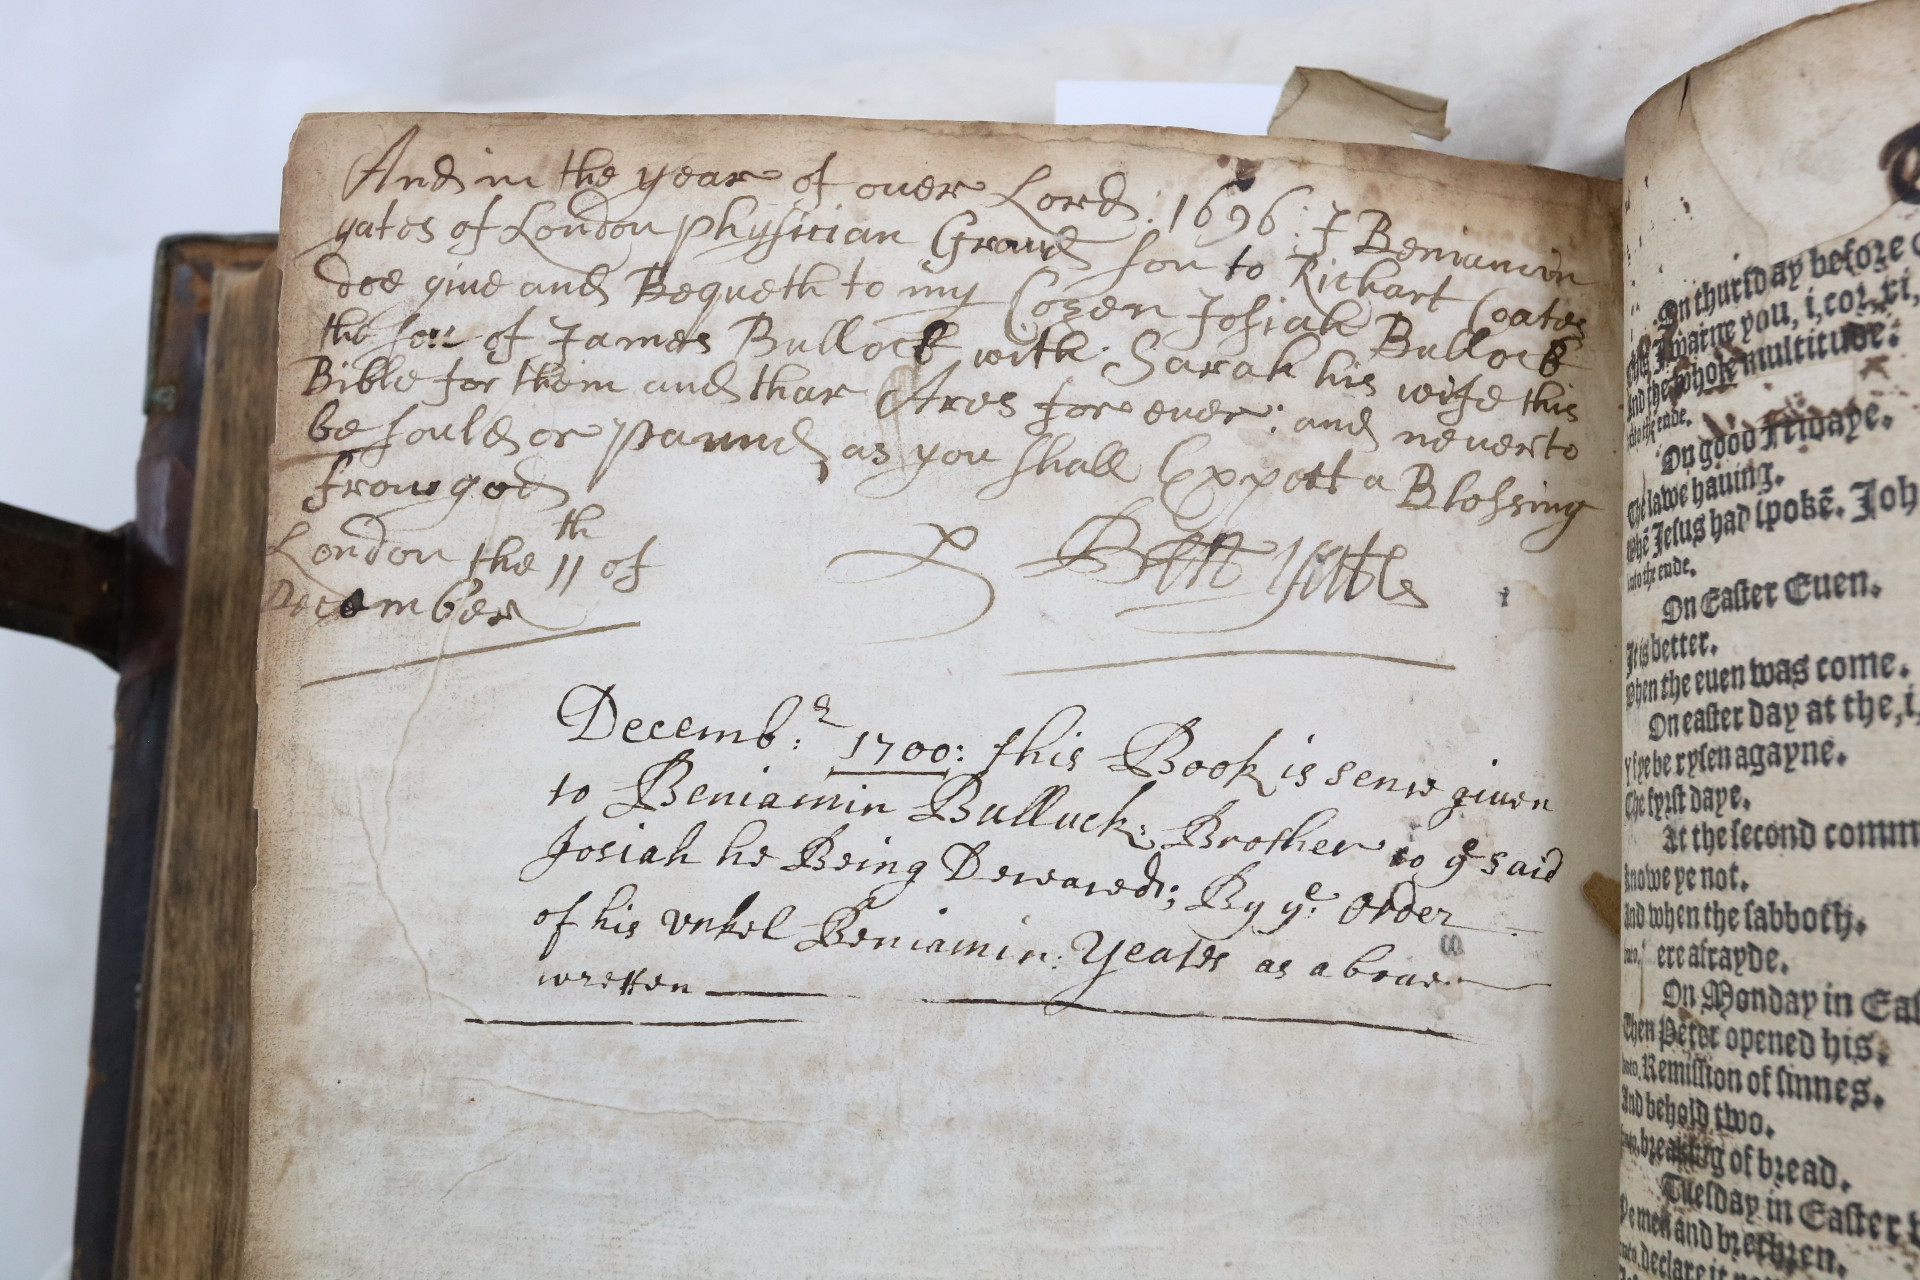 And in the year of ouer Lord: 1696: I Beniamin
yates of London physician Grand son to Richart Coates
doe giue and Bequeth to my Cozen Josiah Bullock
the son of James Bullock with Sarah his wife this
Bible for them and thar Ares for euer: and neuer to
be sould or pannd as you shall Expett a Blessing
from god
London the 11th of
December
Ben Yates
Decembr: 1700: this Book is senc giuen
to Beniamin Bulluck: Brother to ye said
Josiah he Being Deceaced; By ye: Order
of his vnkel Beniamin: Yeates as aboue
wretten
On thursday before
you, i, cor, xi,
And the whole multitude:
into the ende.
On good Fridaye.
The lawe hauing.
whē Jesus had spokē. Joh
into the ende.
On Easter Euen.
It is better.
When the euen was come.
On easter day at the, i,
Yf ye be rysen agayne.
The fyrst daye.
At the second comm
Knowe ye not.
And when the sabboth.
ere afrayde.
On Monday in Eas
Then Peter opened his.
into. Remission of sinnes.
And behold two.
breaking of bread.
Tuesday in Easter
Ye men and brethren.
declare it